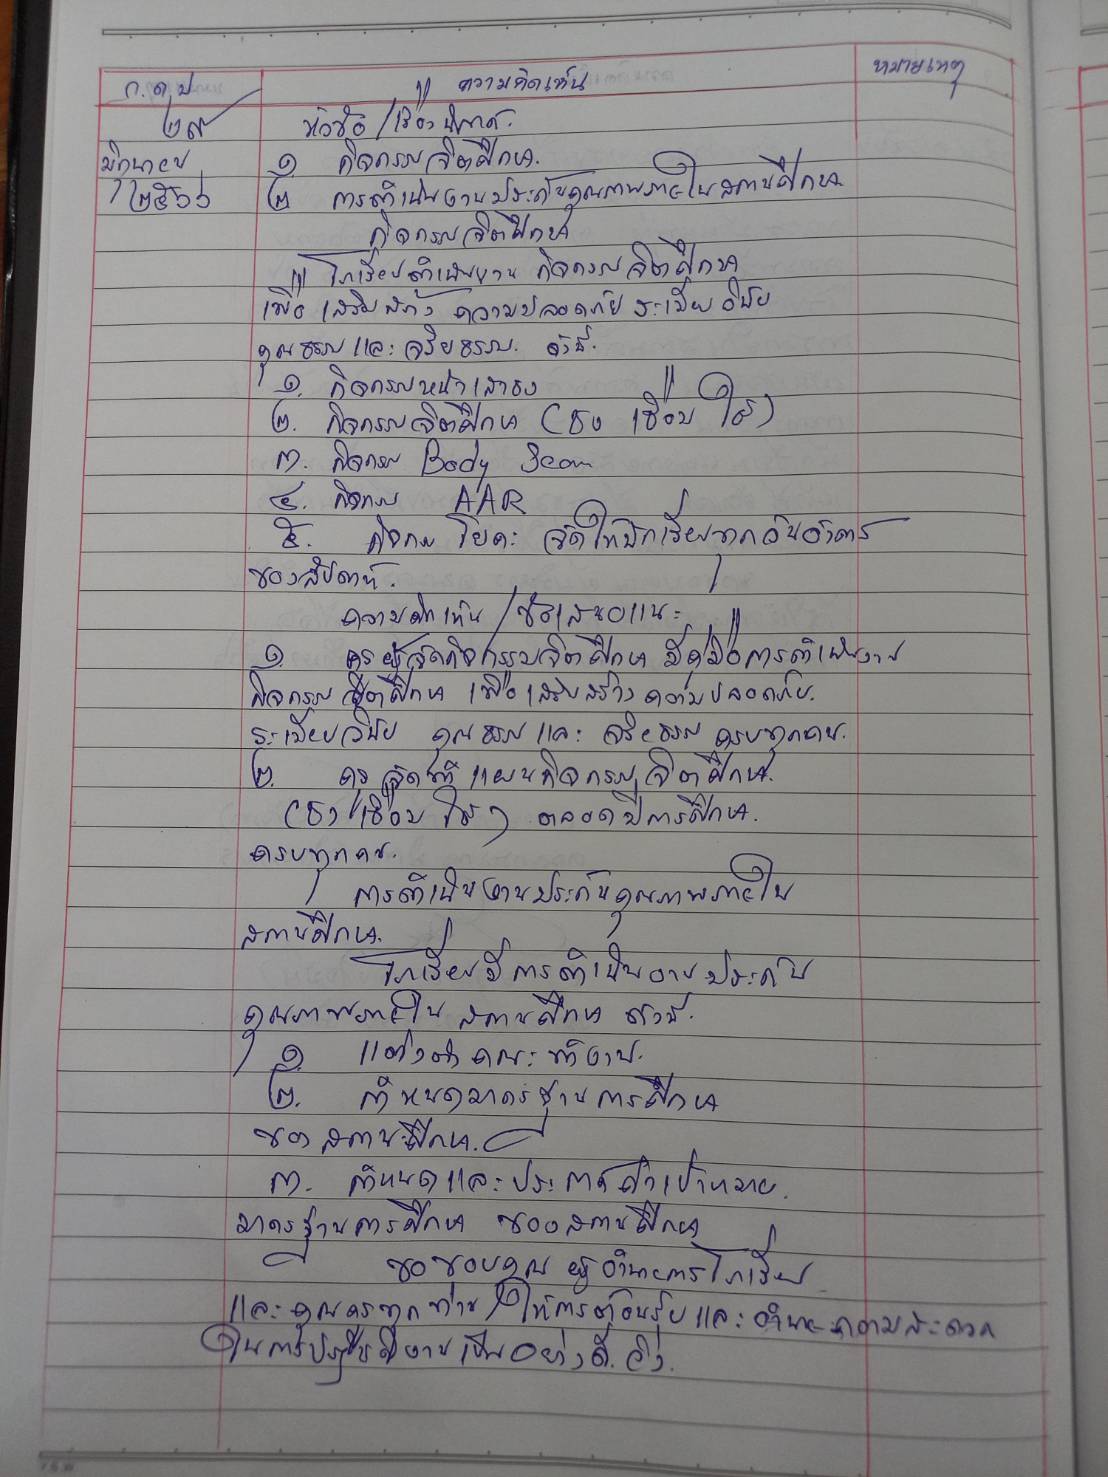 ว.ด.ป ความคิดเห็น หมายเหตุ
๒๙ หัวข้อ/เรื่องนิเทศ.
มิถุนายน ๑ กิจกรรมจิตศึกษา.
๒๕๖๖ ๒ การดำเนินงานประกันคุณภาพภายในสถานศึกษา
กิจกรรมจิตศึกษา
โรงเรียนดำเนินงาน กิจกรรมจิตศึกษา
เพื่อ เสริมสร้าง ความปลอดภัย ระเบียบ วินัย
คุณธรรม และ จริยธรรม. ดังนี้.
๑. กิจกรรมหน้าเสาธง
๒. กิจกรรมจิตศึกษา (ชง เชื่อม ใช้)
๓. กิจกรรม Body Scan
๔. กิจกรรม AAR
๕. กิจกรรม โยคะ จัดให้นักเรียนทุกวันอังคาร
ของสัปดาห์.
ความคิดเห็น /ข้อเสนอแนะ
๑. ครูผู้จัดกิจกรรมจิตศึกษา มีคู่มือการดำเนินงาน
กิจกรรมจิตศึกษา เพื่อเสริมสร้าง ความปลอดภัย.
ระเบียบวินัย คุณธรรม และ จริยธรรม ครบทุกคน.
๒. ครู จัดทำ แผนกิจกรรมจิตศึกษา.
(ชง เชื่อม ใช้) ตลอดปีการศึกษา.
ครบทุกคน.
การดำเนินงานประกันคุณภาพภายใน
สถานศึกษา.
โรงเรียนมีการดำเนินงานประกัน
คุณภาพภายใน สถานศึกษา ดังนี้.
๑ แต่งตั้งคณะทำงาน.
๒. กำหนดมาตรฐานการศึกษา
ของสถานศึกษา.
๓. กำหนดและประกาศค่าเป้าหมาย.
มาตรฐานการศึกษา ของสถานศึกษา
ขอขอบคุณ ผู้อำนวยการโรงเรียน
และคุณครูทุกท่าน ให้การต้อนรับ และอำนวยความสะดวก
ในการปฏิบัติงานเป็นอย่างดียิ่ง.